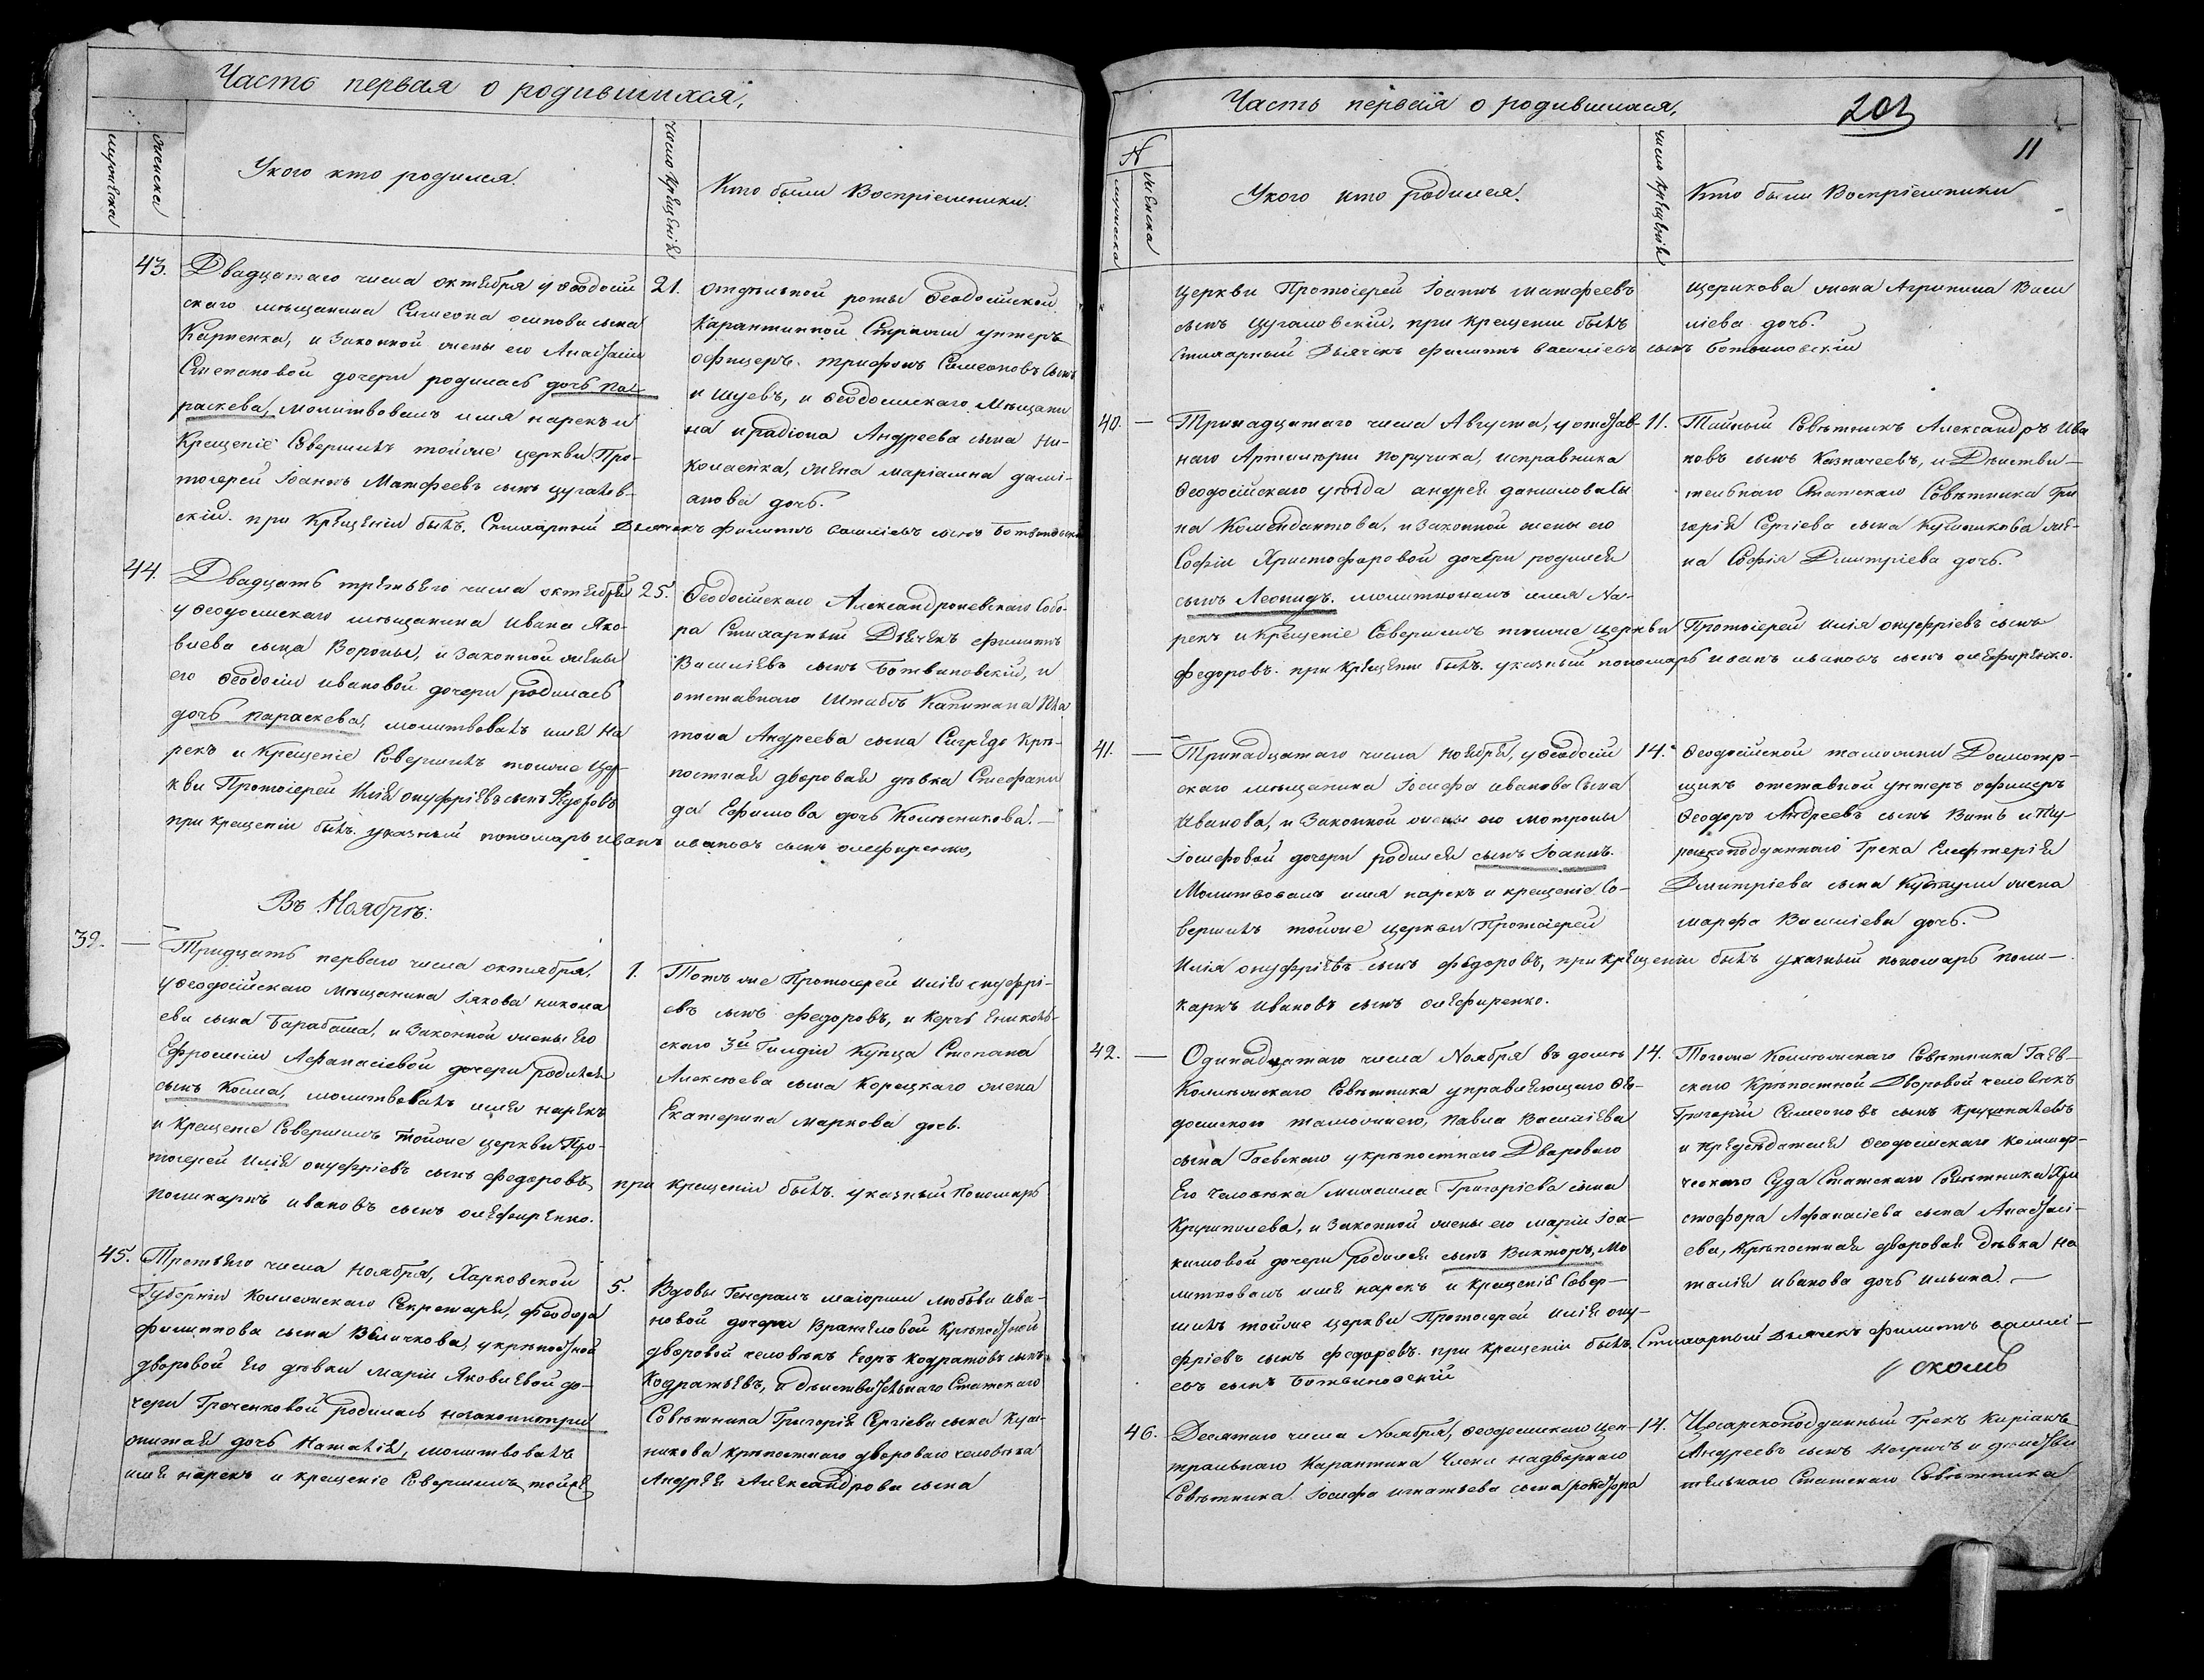 Часть первая о родившихся,
мужеска
женска
У кого кто родился.
Число крещенія
Кто были Воспріемники.
43.
Двадцатаго числа октября у Ѳеодосій
скаго мѣщанина Симеона осипова сына
Карпенка, и Законной жены его Анастасіи
Степановой дочери родилась дочь Па-
раскева, молитвовалъ имя нарекъ и
Крещеніе Совершилъ тойже церкви Про-
тоіерей Іоаннъ Матфеевъ сынъ
скій. при Крещеніи былъ. Стихарный Дьячекъ филиппъ василіевъ сынъ Ботвиновскій
21.
отдѣльной роты Ѳеодосійской
Карантинной Стражи унтеръ
офицеръ. трифонъ Симеоновъ Сынъ
и Ѳеодосійскаго Мѣщани
на иродіона Андреева сына Ни-
колаенка, жена маріамна дамі-
анова дочь.
44.
Двадцать третьяго числа октября
у Ѳеодосійскаго мѣщанина Ивана Яко-
влева сына Вороны, и Законной жены
его Ѳеодосіи ивановой дочери родилась
дочь параскева, молитвовалъ имя На
рекъ и Крещеніе Совершилъ тойже Цер-
кви Протоіерей Илія онуфріевъ сынъ Федоровъ
при крещеніи былъ. указный пономарь иванъ ивановъ сынъ олефиренко,
25.
Ѳеодосійскаго Александроневскаго Собо-
ра Стихарный Дьячекъ филиппъ
Василіевъ сынъ Ботвиновскій, и
отставнаго Штабсъ Капитана Пла
тона Андреева сына Крѣ-
постная дворовая дѣвка Стефани
да Ефимова дочь Колѣсникова.—
Въ Ноябрѣ:
39.
—
Тридцать перваго числа октября,
у Ѳеодосійскаго мѣщанина Іакова никола
ева сына Барабаша, и Законной жены его
Ефросиніи Афанасіевой дочери родился
сынъ Косма, молитвовалъ имя нарекъ
и Крещеніе Совершилъ тойже церкви Про-
тоіерей Илія онуфріевъ сынъ федоровъ, при крещеніи былъ. указный Пономарь
поликарпъ ивановъ сынъ олефиренко.
1.
Тотъ же Протоіерей илія онуфрі-
евъ сынъ Федоровъ, и Керчь Еникол-
скаго 3й Гилдіи Купца Степана
Алексѣева сына Корецкаго жена
Екатерина маркова дочь.
45.
Третьяго числа Ноября, Харковской
Губерніи Коллежскаго Секретаря, Феодора
филиппова сына Величкова, у крѣпостной
дворовой Его дѣвки маріи Яковлевой до-
чери Граченковой родилась незаконнопри
житая дочь Наталія, молитвовалъ
имя нарекъ и крещеніе Совершилъ тойже
5.
Вдовы Генералъ маіорши любови Ива-
новой дочери Врангеловой Крѣпостной
дворовой человѣкъ Егоръ кодратовъ сынъ
Кодратьевъ, и дѣйствительнаго Статскаго
Совѣтника Григорія Сергіева сына Куш-
никова крѣпостнаго двороваго человѣка
Андрея Александрова сына
Часть первая о родившихся,
203
11
N
мужеска
женска
У кого кто родился.
число крещенія
Кто были Воспріемники
церкви Протоіерей Іоаннъ матфеевъ
сынъ при крещеніи былъ
Стихарный Дьячекъ филиппъ василіевъ сынъ ботвиновскій
щерикова жена Агрипина Васи
ліева дочь.
40.
—
Тринадцатаго числа Августа, у отстав-
наго Артилеріи поручика, исправника
Ѳеодосійскаго уѣзда андрея данилова сы
на Комендантова, и законной жены его
Софіи Христофоровой дочери родился
сынъ Леонидъ. молитвовалъ имя На-
рекъ и Крещеніе Совершилъ тойже церкви Протоіерей илія онуфріевъ сынъ
федоровъ. при крещеніи былъ. указный пономарь иванъ ивановъ сынъ олефиренко.
11.
Тайный Совѣтникъ Александръ ива
новъ сынъ Казначеевъ, и Дѣйстви-
тельнаго Статскаго Совѣтника Гри
горія Сергіева сына Кушникова же-
на Софія Дмитріева дочь.
41.
—
Тринадцатаго числа ноября, у Ѳеодосій
скаго мѣщанина Іосифа иванова Сына
Иванова, и Законной жены его мотроны
іосифовой дочери родился сынъ Іоаннъ.
Молитвовалъ имя нарекъ и крещеніе Со-
вершилъ тойже церкви Протоіерей
Илія онуфріевъ сынъ федоровъ, при крещеніи былъ указный пономарь поли-
карпъ ивановъ сынъ олефиренко.
14.
Ѳеодосійской таможни Досмотр-
щикъ отставной унтеръ офицеръ
Ѳеодоръ Андреевъ сынъ Витъ и Ту-
рецкоподданнаго Грека Елефтерія
Дмитріева сына жена
марфа Василіева дочь.
42.
—
Одинадцатаго числа Ноября въ домѣ
Колежскаго Совѣтника управляющаго Ѳео-
досійскою таможнею, Павла Василіева
сына Гаевскаго у крѣпостнаго Двороваго
Его Человѣка михаила Григоріева сына
и Законной жены его маріи Іоа-
кимовой дочери родился сынъ Викторъ, Мо
литвовалъ имя нарекъ и крещеніе Совер-
шилъ тойже церкви Протоіерей илія ону-
фріевъ сынъ федоровъ. при крещеніи былъ. Стихарный Дьячекъ филиппъ василі-
евъ сынъ Ботвиновскій
14.
Тогоже Колежскаго Совѣтника Гаев-
скаго Крѣпостной Дворовой человѣкъ
Григорій Симеоновъ сынъ
и предсѣдателя Ѳеодосійскаго коммер-
ческаго Суда Статскаго Совѣтника Хри
стофора Афанасіева сына Анастасі-
ева, Крѣпостная дворовая дѣвка На
талія иванова дочь ильина.—
46.
Десятаго числа Ноября, Ѳеодосійскаго Цен-
тральнаго Карантина Члена надворнаго
Совѣтника Іосифа игнатьева сына
14.
Цесарскоподданный Грекъ Киріакъ
Андреевъ сынъ и дѣйстви
тельнаго Статскаго Совѣтника